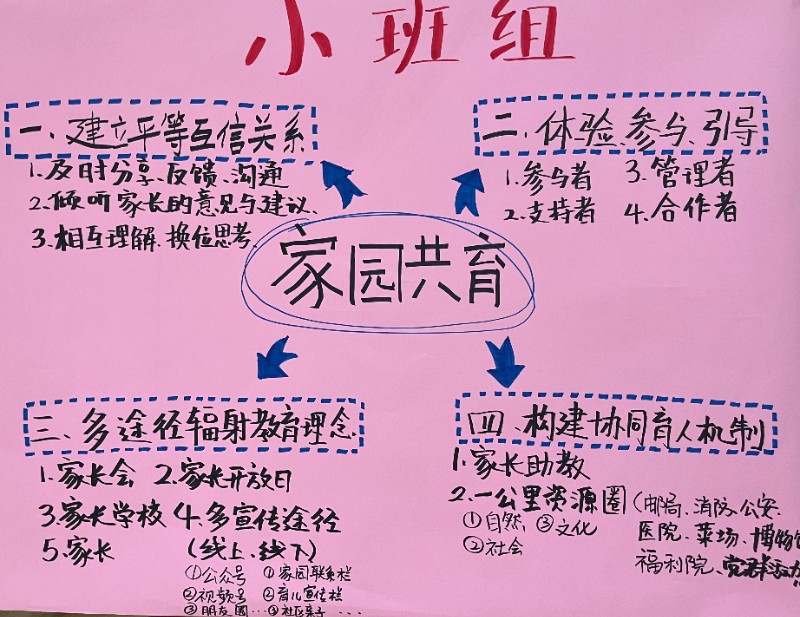 小班组
一、建立平等互信关系
1.及时分享、反馈、沟通
2.倾听家长的意见与建议、
3.相互理解、换位思考、
二、体验、参与、引导
1.参与者 3.管理者
2.支持者 4.合作者
家园共育
三、多途径辐射教育理念
1.家长会 2.家长开放日
3.家长学校 4.多宣传途径
5.家长 (线上、线下)
①公众号 ①家园联系栏
②视频号 ②育儿宣传栏
③朋友圈… ③社区亲子……
四、构建协同育人机制
1.家长助教
2.一公里资源圈(邮局、消防、公安、
①自然、③文化 医院、菜场、博物馆
②社会 福利院、党群